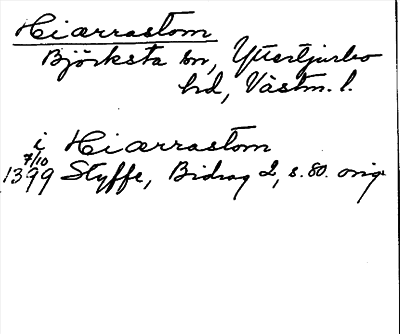 Hiærrastom
Björksta sn, Yttertjurbo
hd, Västm. l.
i Hiærrastom
7/10
1399 Styffe, Bidrag 2, s. 80. orig